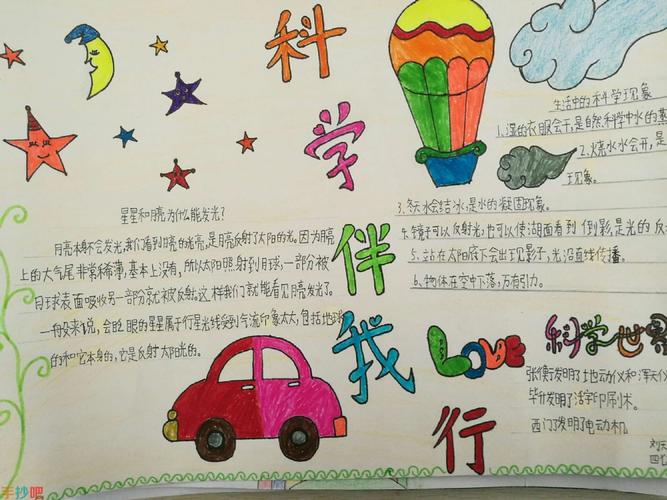 科
学
伴
我
行
星星和月亮为什么能发光?
月亮本身不会发光,我们看到月亮的光亮,是月亮反射了太阳的光。因为月亮
上的大气尾非常稀薄,基本上没有,所以太阳照射到月球,一部分被
月球表面吸收另一部分就被反射。这样我们就能看见月亮发光了。
一般来说,会眨眼的星星属于行星光线受到气流印象太大,包括地球
的和它本身的,它是反射太阳光的。
生活中的科学现象
1.湿的衣服会干,是自然科学中水的蒸
2.烧水水会开,是
现象。
3.冬天水会结冰,是水的凝固现象。
4.镜子可以反射光,也可以使湖面看到倒影,是光的反
5.站在太阳底下会出现影子,光沿直线传播。
6.物体在空中下落,万有引力。
LOVE 科学世界
张衡发明了地动仪和浑天仪
毕升发明了活字印刷术。
西门子发明了电动机
刘天
四
手抄吧